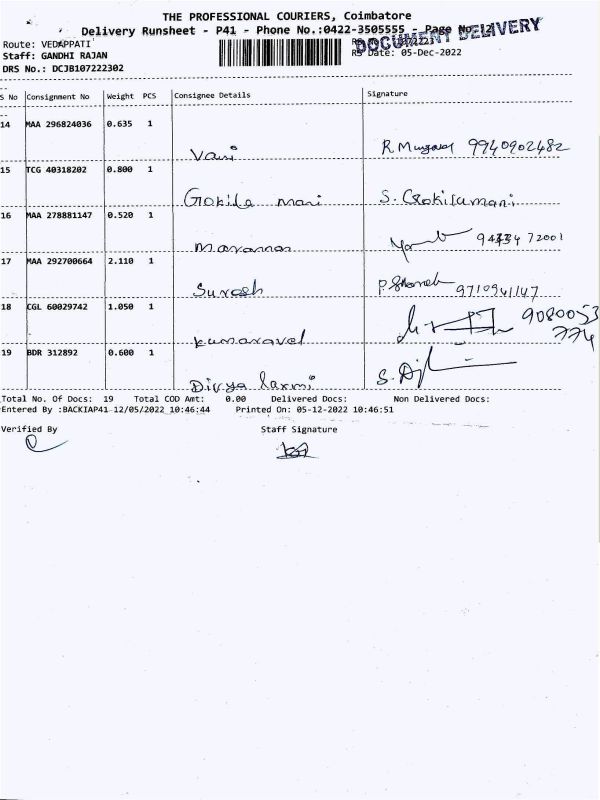 THE PROFESSIONAL COURIERS, Coimbatore
Delivery Runsheet - P41 - Phone No.:0422-3505555 - Page No.
DOCUMENT DELIVERY
Route: VEDAPPATI
Staff: GANDHI RAJAN
RS Date: 05-Dec-2022
DRS No.: DCJB107222302
S No Consignment No Weight PCS Consignee Details Signature
14 MAA 296824036 0.635 1
Vani R. Murugavel 9940902482
15 TCG 40318202 0.800 1
Gokila mani S. Gokilamani
16 MAA 278881147 0.520 1
72001
17 MAA 292700664 2.110 1
Suresh 9710941147
18 CGL 60029742 1.050 1
kumaravel 9080053
774
19 BDR 312892 0.600 1
Divya laxmi
Total No. Of Docs: 19 Total COD Amt: 0.00 Delivered Docs: Non Delivered Docs:
Entered By :BACKIAP41 12/05/2022 10:46:44 Printed On: 05-12-2022 10:46:51
Verified By Staff Signature